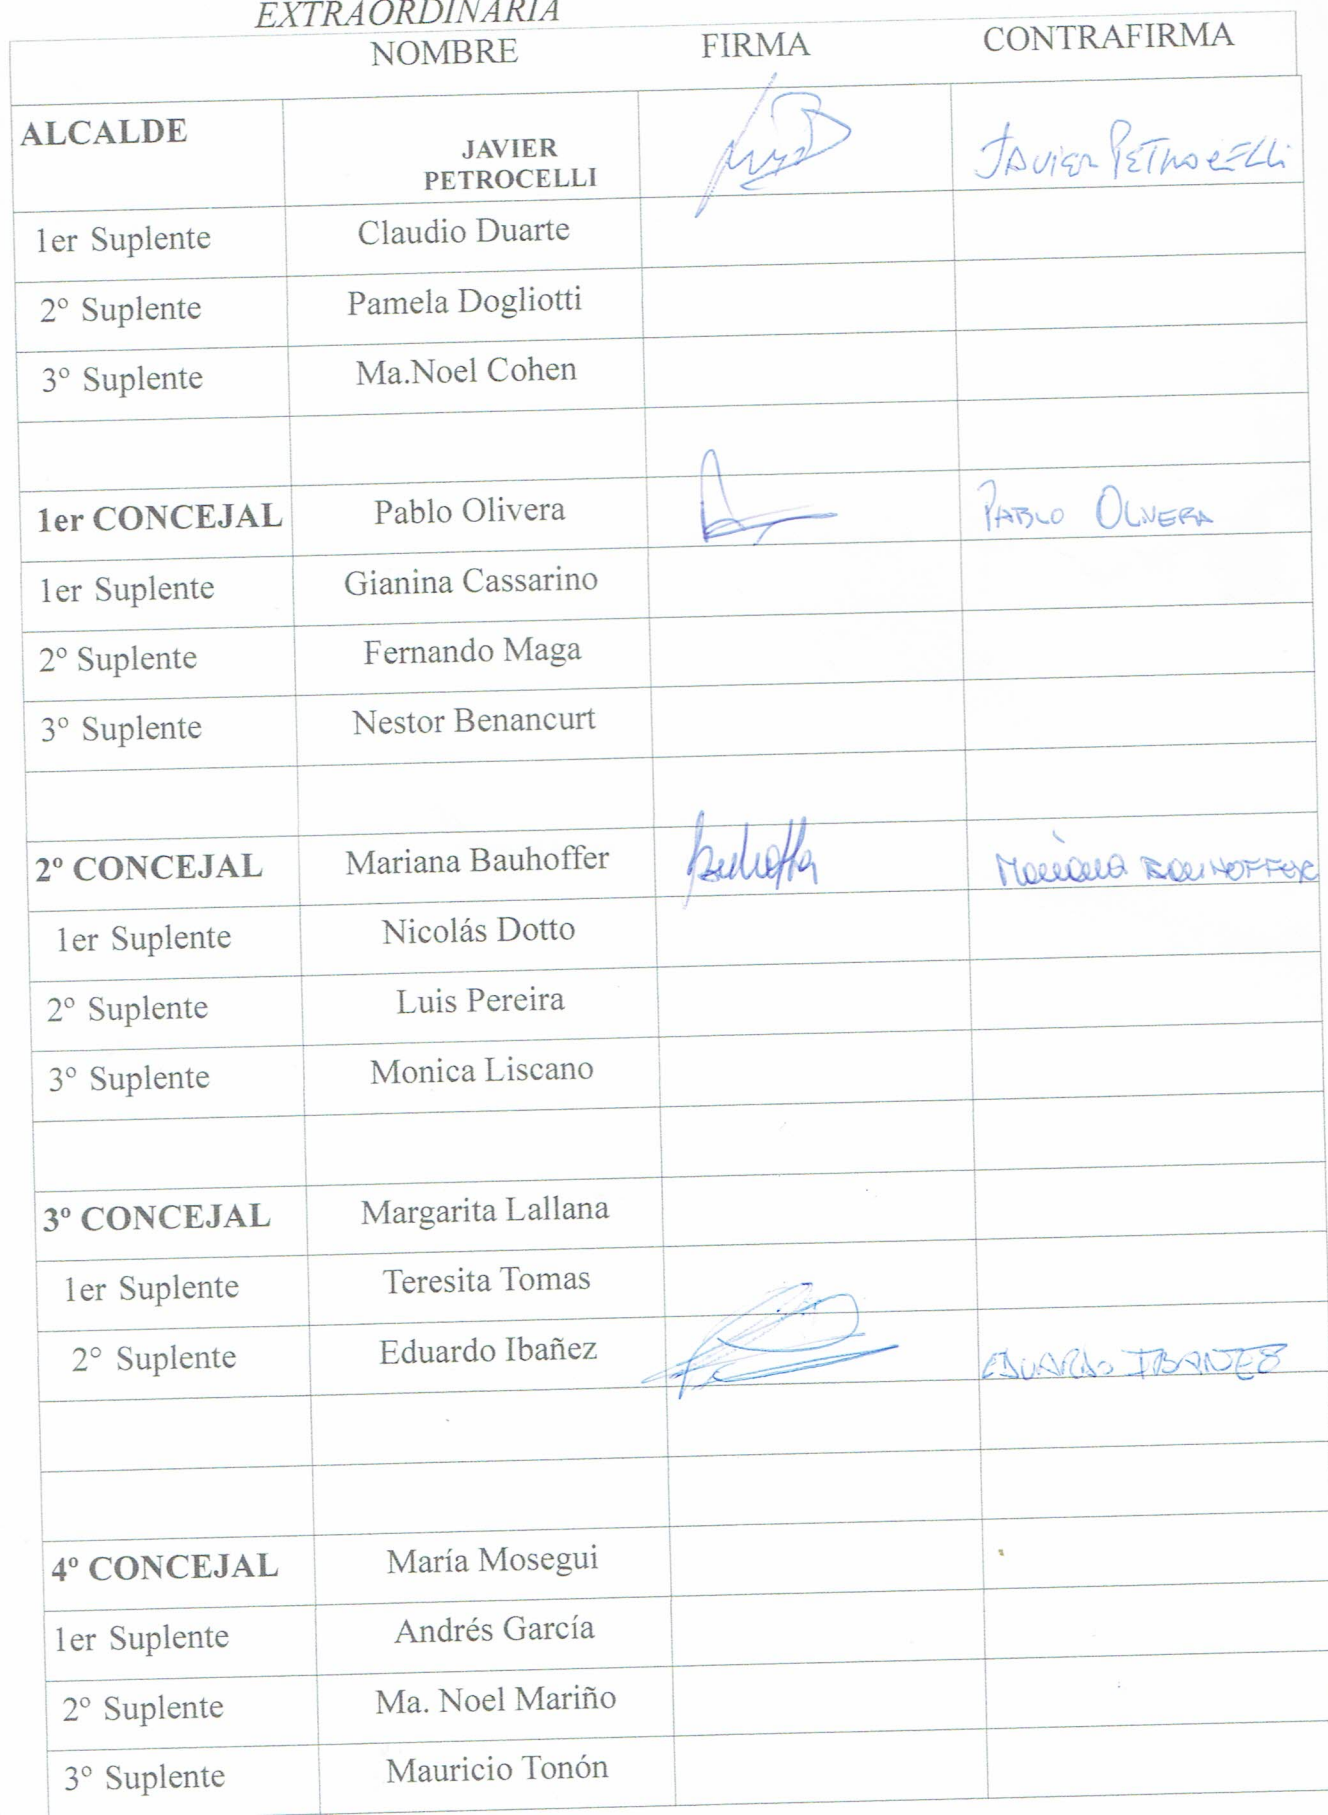 EXTRAORDINARIA
NOMBRE FIRMA CONTRAFIRMA
ALCALDE JAVIER PETROCELLI Javier Petrocelli
1er Suplente Claudio Duarte
2º Suplente Pamela Dogliotti
3º Suplente Ma.Noel Cohen
1er CONCEJAL Pablo Olivera PABLO OLIVERA
1er Suplente Gianina Cassarino
2º Suplente Fernando Maga
3º Suplente Nestor Benancurt
2º CONCEJAL Mariana Bauhoffer Mariana BAUHOFFER
1er Suplente Nicolás Dotto
2º Suplente Luis Pereira
3º Suplente Monica Liscano
3º CONCEJAL Margarita Lallana
1er Suplente Teresita Tomas
2° Suplente Eduardo Ibañez EDUARDO IBAÑEZ
4º CONCEJAL María Mosegui
1er Suplente Andrés García
2º Suplente Ma. Noel Mariño
3º Suplente Mauricio Tonón